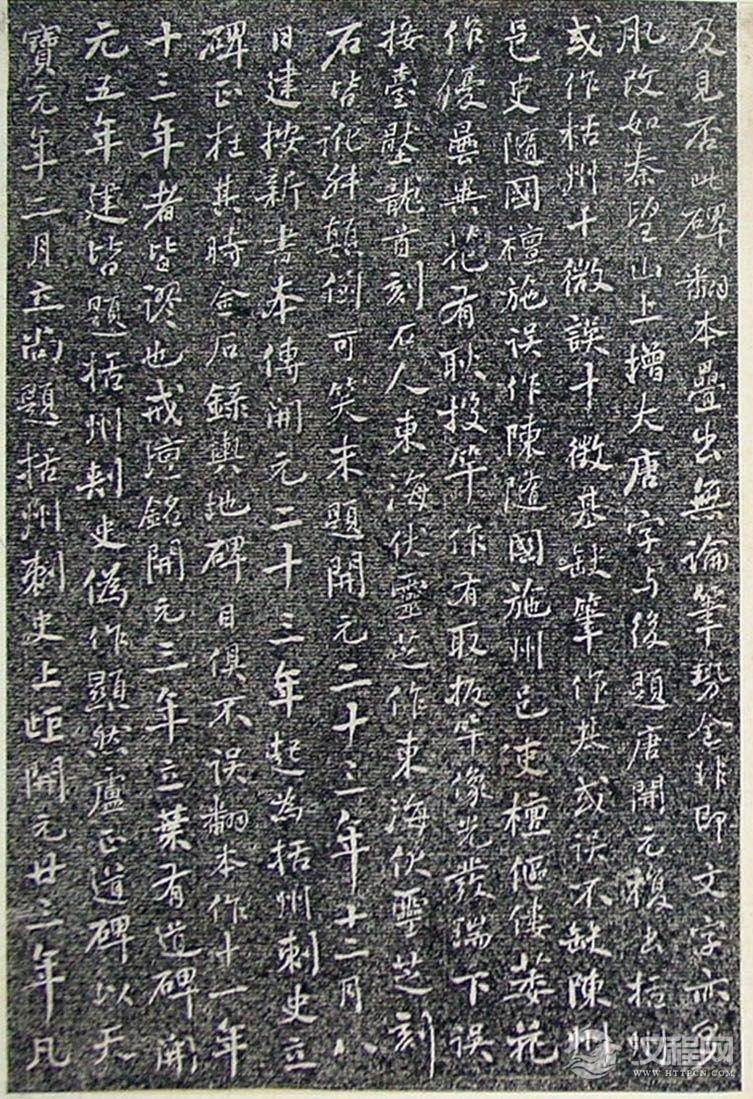 及見否此碑翻本疊出無論筆勢全非即文字亦多
肊改如秦望山上增大唐字与後題唐開元複出括州
或作枯州十微誤十徵基缺筆作基或误不缺陳州
邑史隨國檀施误作陳隨國施州邑吏檀傴僂萎花
作優曇異花有耿投竿作有取扳竿像光發瑞下误
接臺壓龍首刻石人東海伏靈芝作東海伏靈芝刻
石皆訛舛顛倒可笑末題開元二十三年十二月八
日建按新書本傳開元二十三年起為括州刺史立
碑正在其時金石録輿地碑目俱不误翻本作十一年
十三年者皆謬也戒壇銘開元三年立葉有道碑開
元五年建皆題括州刺史偽作顯然盧正道碑以天
寶元年二月立尚題括州刺史上距開元廿三年凡
汉程网
WWW.HTTPCN.COM